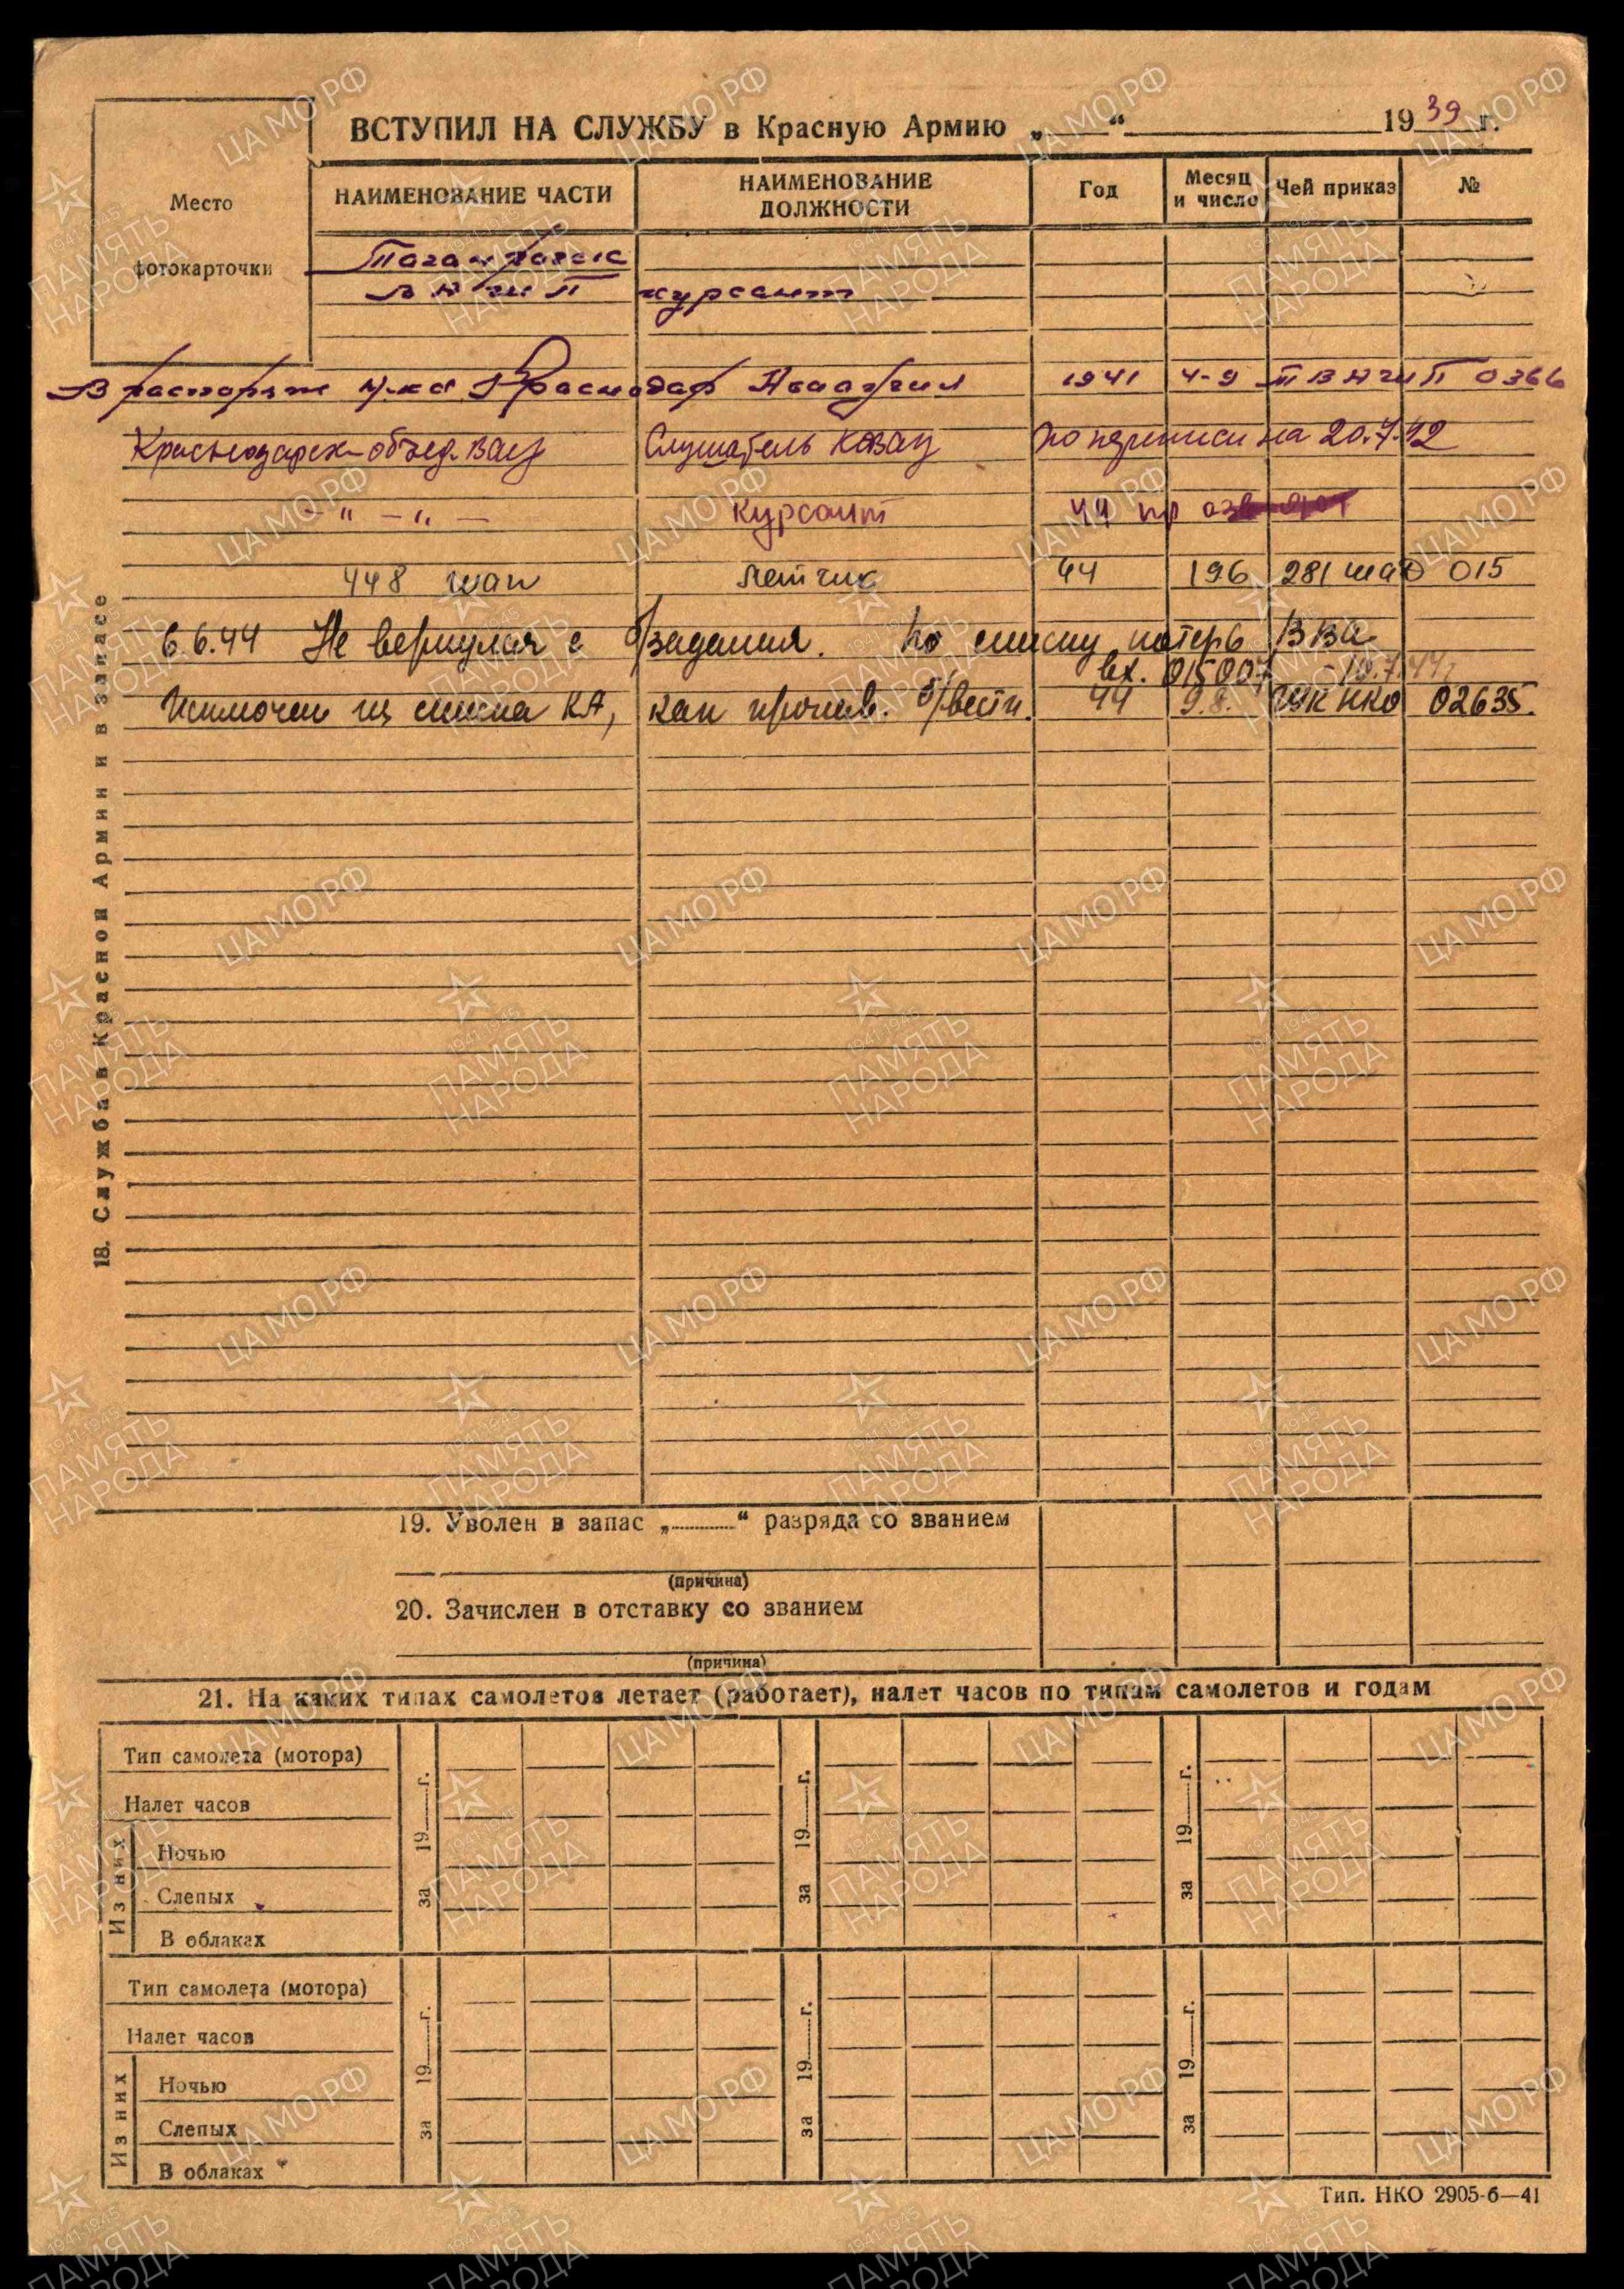 ВСТУПИЛ НА СЛУЖБУ в Красную Армию „ “ 1939 г.
Место фотокарточки
НАИМЕНОВАНИЕ ЧАСТИ НАИМЕНОВАНИЕ ДОЛЖНОСТИ Год Месяц и число Чей приказ №
Таганрогск
ВАШП курсант
В распоряж Н-ка Краснодар 1941 4-9 ТВАШП 0366
Краснодарск объед. ВАУ Слушатель КОВАУ по переписи на 20.7.42
– " – " – курсант 44 пр
448 шап летчик 44 196 281 шад 015
6.6.44 Не вернулся с б/задания. по списку потерь 13 ВА
вх. 015007 - 10.7.44г
Исключен из списка КА, как пропав. б/вести. 44 9.8. ГУК НКО 02635.
18. Служба в Красной Армии и в запасе
19. Уволен в запас „ “ разряда со званием
(причина)
20. Зачислен в отставку со званием
(причина)
21. На каких типах самолетов летает (работает), налет часов по типам самолетов и годам
Тип самолета (мотора)
за 19 г. за 19 г. за 19 г.
Налет часов
Из них
Ночью
Слепых
В облаках
Тип самолета (мотора)
за 19 г. за 19 г. за 19 г.
Налет часов
Из них
Ночью
Слепых
В облаках
Тип. НКО 2905-б—41
ЦА МО РФ
1941-1945
ПАМЯТЬ
НАРОДА